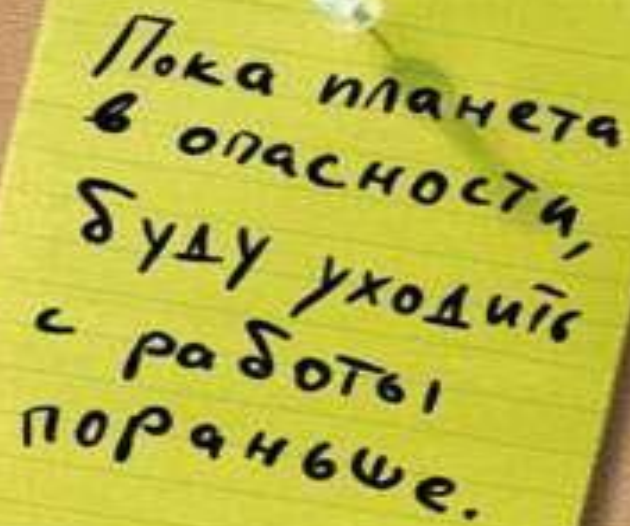 Пока планета
в опасности,
буду уходить
с работы
пораньше.